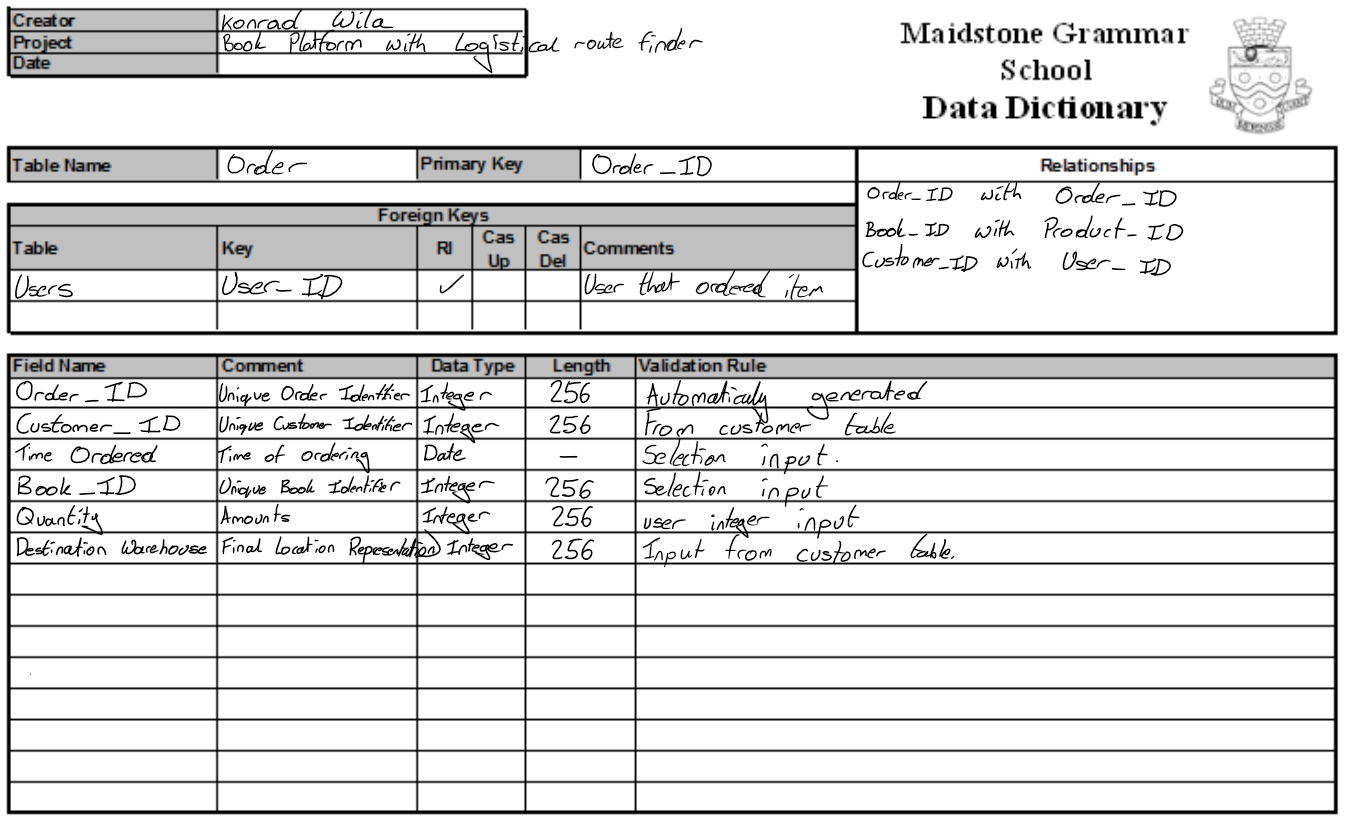 Creator Konrad Wila
Project Book Platform with Logistical route finder
Date
Maidstone Grammar
School
Data Dictionary
Table Name Order Primary Key Order_ID
Relationships
Order_ID with Order_ID
Book_ID with Product_ID
Customer_ID with User_ID
Foreign Keys
Table Key RI Cas Up Cas Del Comments
Users User_ID ✓ User that ordered item
Field Name Comment Data Type Length Validation Rule
Order_ID Unique Order Identifier Integer 256 Automatically generated
Customer_ID Unique Customer Identifier Integer 256 From customer table
Time Ordered Time of ordering Date — Selection input.
Book_ID Unique Book Identifier Integer 256 Selection input
Quantity Amounts Integer 256 user integer input
Destination Warehouse Final Location Representation Integer 256 Input from customer table.